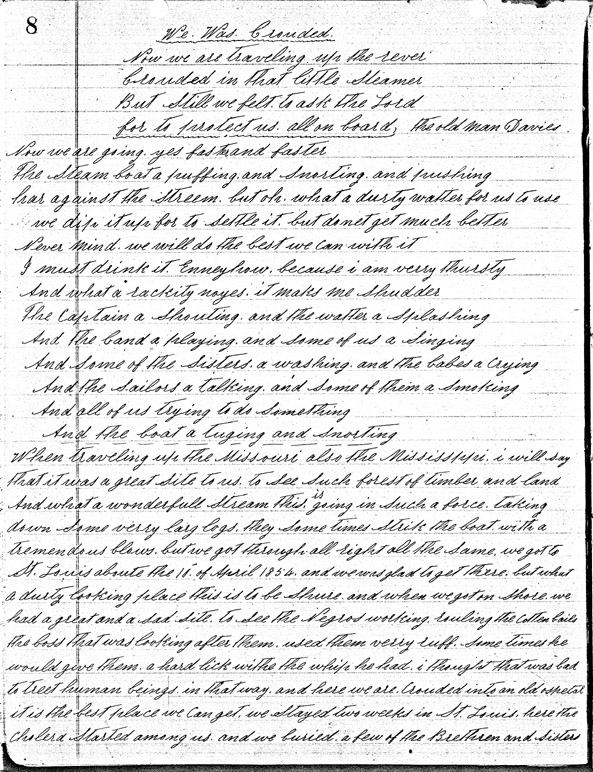 8
We. Was. Crouded.
Now we are traveling. up the rever
Crouded in that little Steamer
But Still we felt. to ask the Lord
for to protect us. all on board, the old man Davies.
Now we are going. yes fast and faster
The Steam boat a puffing. and Snorting. and pushing
har against the Streem. but oh. what a durty watter for us to use
we dip it up for to settle it. but donet get much better
Never mind. we will do the best we can with it
I must drink it. Enneyhow. because i am verry thursty
And what a rackity noyes. it maks me Shudder
The Captain a Shouting. and the watter a Splashing
And the band a playing. and some of us a Singing
And some of the Sisters. a washing. and the babes a Crying
And the Sailors a talking. and some of them a Smoking
And all of us trying to do Something
And the boat a tuging and Snorting
When traveling up the Missouri also the Mississippi. i will say
that it was a great site to us. to see Such forest of timber and land
And what a wonderfull Stream this. is going in Such a force. taking
down Some verry larg logs. they Some times Strik the boat. with a
tremendous blows. but we got through all right all the Same. we got to
St. Louis aboute the 11. of April 1854. and we was glad to get there. but what
a durty looking place this is to be Shure. and when we got on Shore. we
had a great and a sad Site. to see the Negros working. rouling the Cotten bails
the boss that was looking after them. used them verry ruff. Some times he
would give them. a hard lick withe the whip he had. i thought that was bad
to treet human beings. in that way. and here we are. Crouded into an old ospetal
it is the best place we can get. we Stayed two weeks in St. Louis. here the
Cholera Started among us. and we buried. a few of the Brethren and Sisters